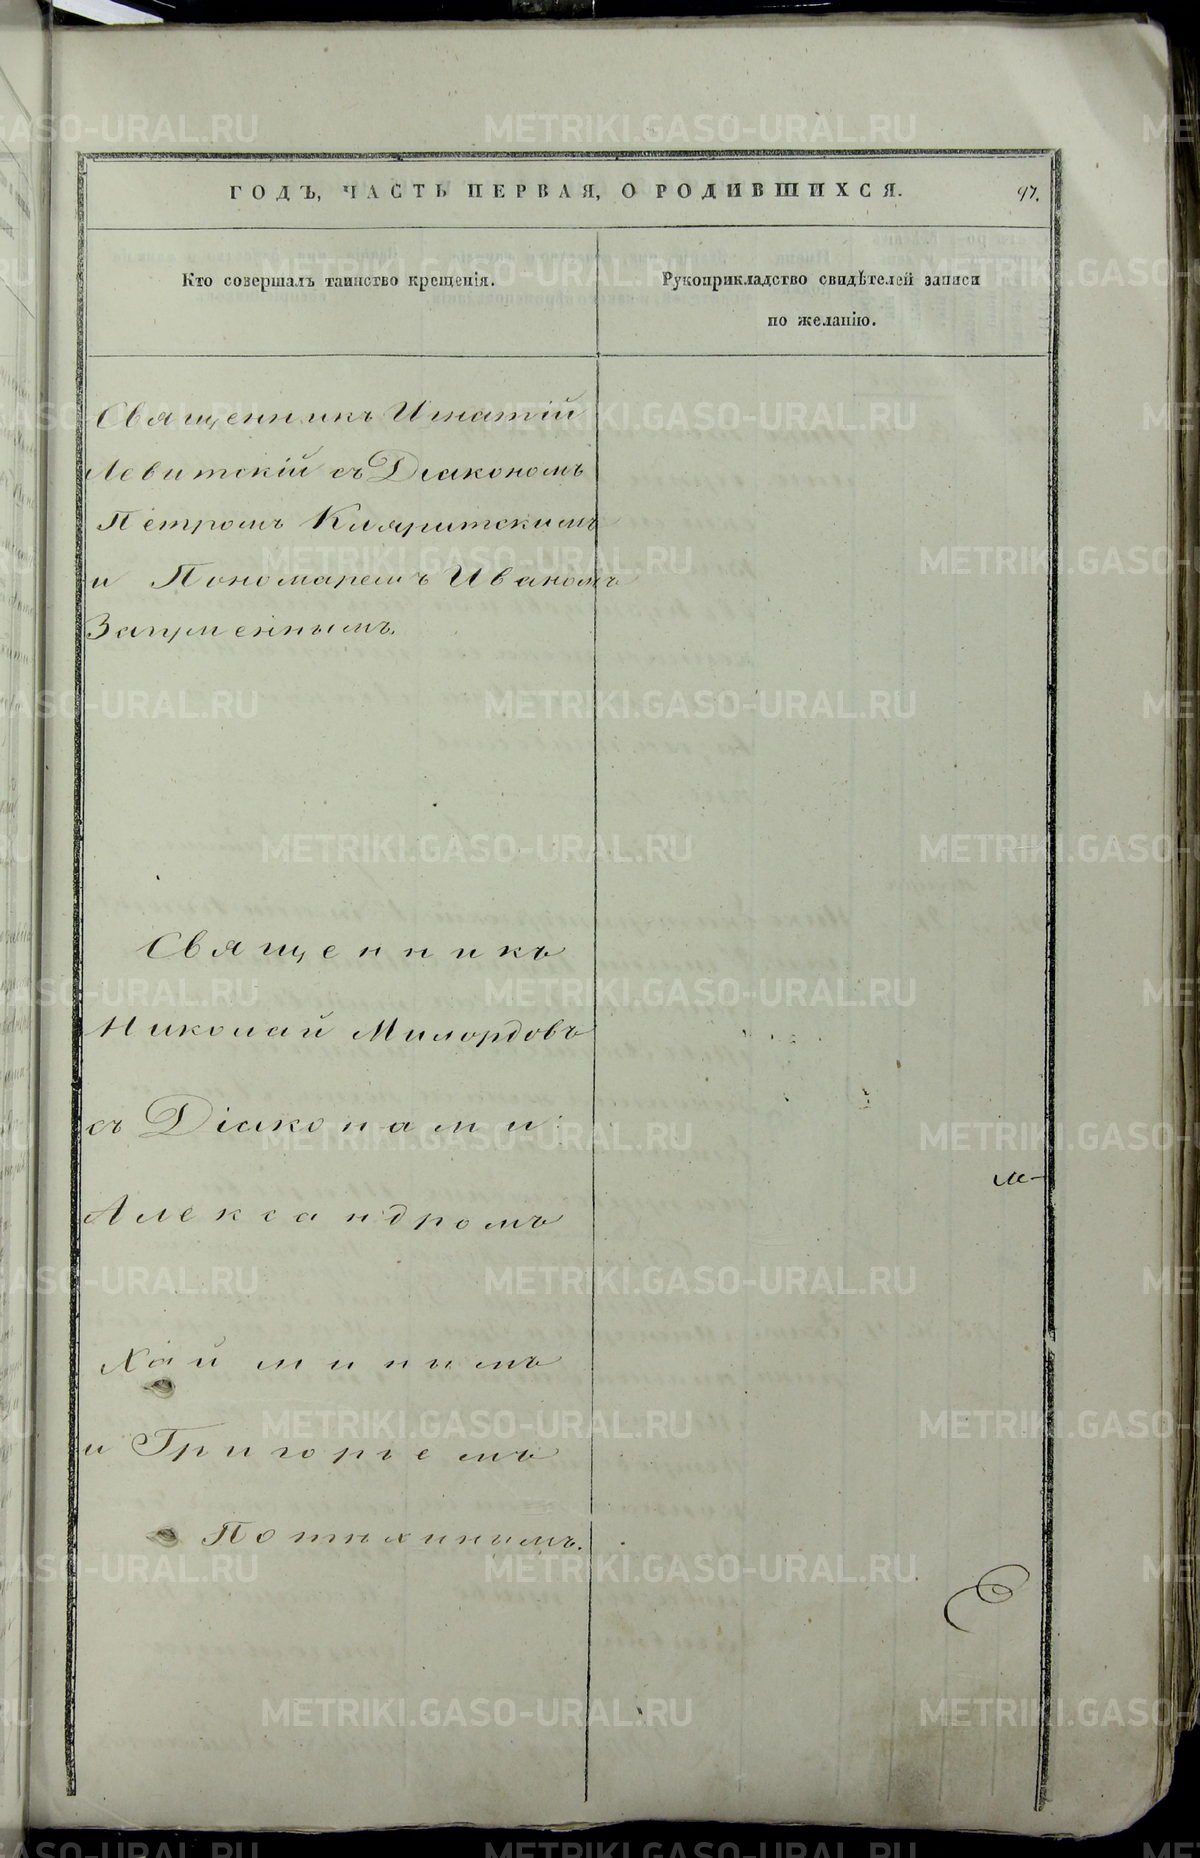 ГОДЪ, ЧАСТЬ ПЕРВАЯ, О РОДИВШИХСЯ.
97.
Кто совершалъ таинство крещенія.
Рукоприкладство свидѣтелей записи
по желанію.
Священникъ Игнатій
Левитскій съ Діакономъ
Петромъ
и Пономаремъ Иваномъ
Священникъ
Николай Милордовъ
съ Діаконами:
Александромъ
Хайминымъ
и Григорьемъ
Потѣхинымъ.
METRIKI.GASO-URAL.RU